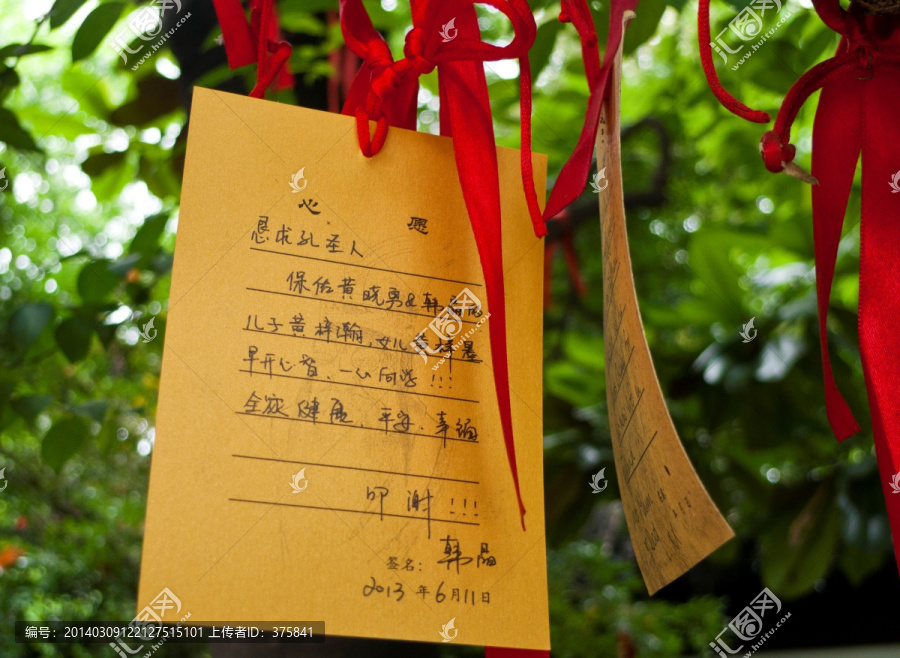 心 愿
恳求孔圣人
保佑黄晓勇&韩
儿子黄梓瀚、女儿黄梓
早开心智、一心向学!!!
全家健康、平安、幸福
叩谢!!!
签名: 韩晶
2013年6月11日
编号: 20140309122127515101 上传者ID: 375841